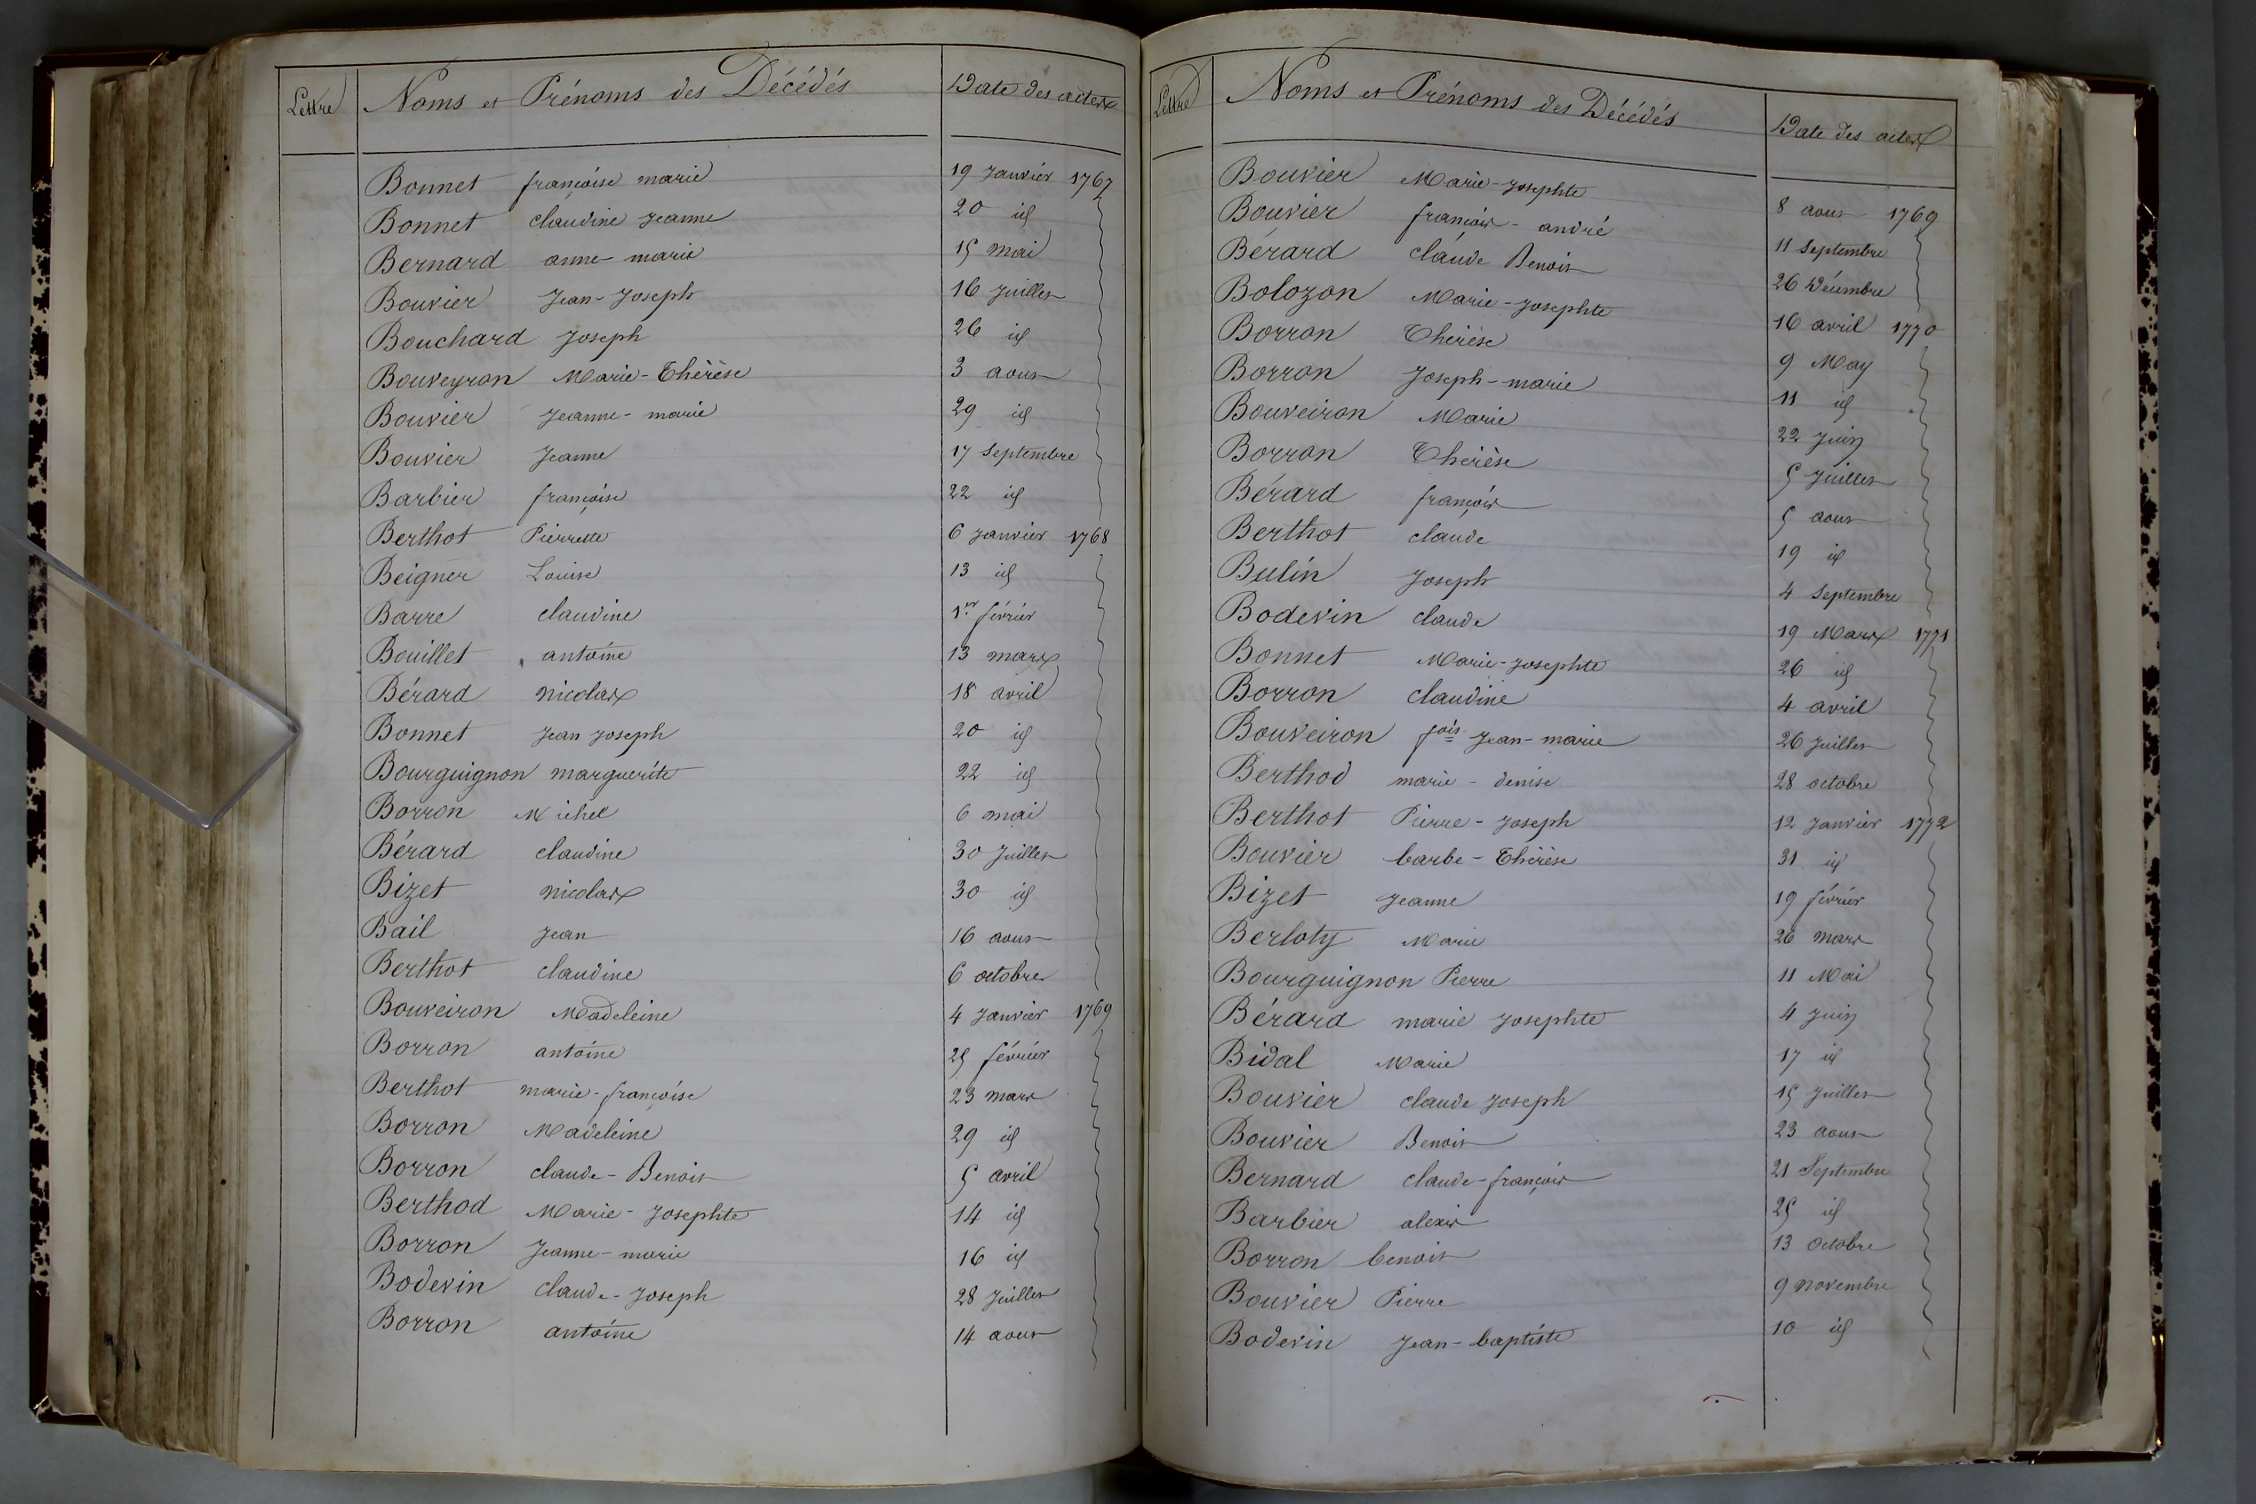 Lettre Noms et Prénoms des Décédés Date des actes
Bonnet françoise marie 19 Janvier 1767
Bonnet claudine Jeanne 20 id
Bernard anne-marie 15 mai
Bouvier Jean-Joseph 16 Juillet
Bouchard Joseph 26 id
Bouveyron Marie-Thérèse 3 aout
Bouvier Jeanne-marie 29 id
Bouvier Jeanne 17 septembre
Barbier françoise 22 id
Berthot Pierrette 6 Janvier 1768
Beigner Louise 13 id
Barre claudine 1er février
Bouillet antoine 13 mars
Bérard nicolas 18 avril
Bonnet Jean Joseph 20 id
Bourguignon marguerite 22 id
Borron Michel 6 mai
Bérard claudine 30 Juillet
Bizet nicolas 30 id
Bail Jean 16 aout
Berthot claudine 6 octobre
Bouveiron Madeleine 4 Janvier 1769
Borron antoine 25 février
Berthot marie-françoise 23 mars
Borron Madeleine 29 id
Borron claude-Benoit 5 avril
Berthod Marie-Josephte 14 id
Borron Jeanne-marie 16 id
Bodevin claude-Joseph 28 Juillet
Borron antoine 14 aout
Lettre Noms et Prénoms des Décédés Date des actes
Bouvier Marie-Josephte 8 aout 1769
Bouvier françois-andré 11 septembre
Bérard claude Benoit 26 Décembre
Bolozon Marie-Josephte 16 avril 1770
Borron Thérèse 9 May
Borron Joseph-marie 11 id
Bouveiron Marie 22 Juin
Borron Thérèse 5 Juillet
Bérard françois 5 aout
Berthot claude 19 id
Bulin Joseph 4 septembre
Bodevin claude 19 Mars 1771
Bonnet Marie-Josephte 26 id
Borron claudine 4 avril
Bouveiron fois Jean-marie 26 Juillet
Berthod marie-denise 28 octobre
Berthot Pierre-Joseph 12 Janvier 1772
Bouvier barbe-Thérèse 31 id
Bizet Jeanne 19 février
Berloty Marie 26 mars
Bourguignon Pierre 11 Mai
Bérard marie Josephte 4 Juin
Bidal Marie 17 id
Bouvier claude Joseph 15 Juillet
Bouvier Benoit 23 aout
Bernard claude-françois 21 Septembre
Barbier alexis 25 id
Borron benoit 13 octobre
Bouvier Pierre 9 novembre
Bodevin Jean-baptiste 10 id